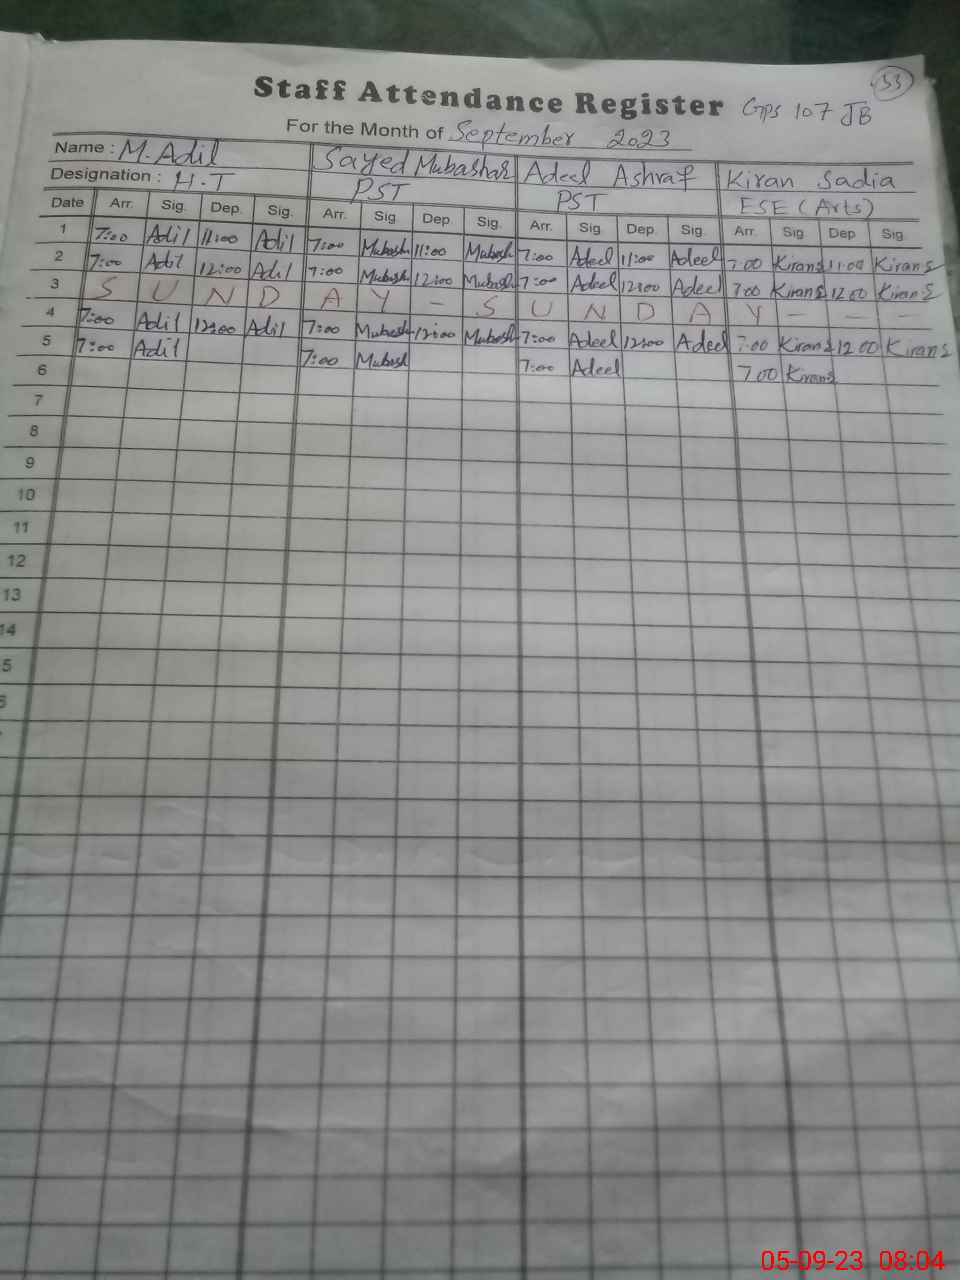 33
Staff Attendance Register GPS 107 JB
For the Month of September 2023
Name : M. Adil Sayed Mubashar Adeel Ashraf Kiran Sadia
Designation : H.T PST PST ESE (Arts)
Date Arr. Sig. Dep. Sig. Arr. Sig. Dep. Sig. Arr. Sig. Dep. Sig. Arr. Sig. Dep Sig.
1 7:00 Adil 11:00 Adil 7:00 Mubash 11:00 Mubash 7:00 Adeel 11:00 Adeel 7 00 Kirans 11:00 Kirans
2 7:00 Adil 12:00 Adil 7:00 Mubash 12:00 Mubash 7:00 Adeel 12:00 Adeel 7 00 Kirans 12 00 Kirans
3 S U N D A Y - S U N D A Y - - -
4 7:00 Adil 12:00 Adil 7:00 Mubash 12:00 Mubash 7:00 Adeel 12:00 Adeel 7:00 Kirans 12 00 Kirans
5 7:00 Adil 7:00 Mubash 7:00 Adeel 7 00 Kirans
6
7
8
9
10
11
12
13
14
5
05-09-23 08:04